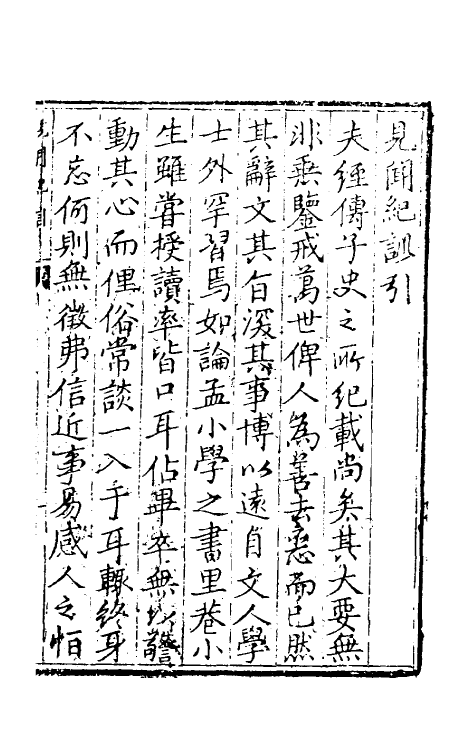 見聞紀訓引
夫經傳子史之所紀載尚矣其大要無
非垂鑒戒萬世俾人為善去惡而已然
其辭文其旨深其事博以遠自文人學
士外罕習焉如論孟小學之書里巷小
生雖嘗授讀率皆口耳佔畢卒無以警
動其心而俚俗常談一入于耳輙終身
不忘何則無徵弗信近事易感人之恒
見聞紀訓